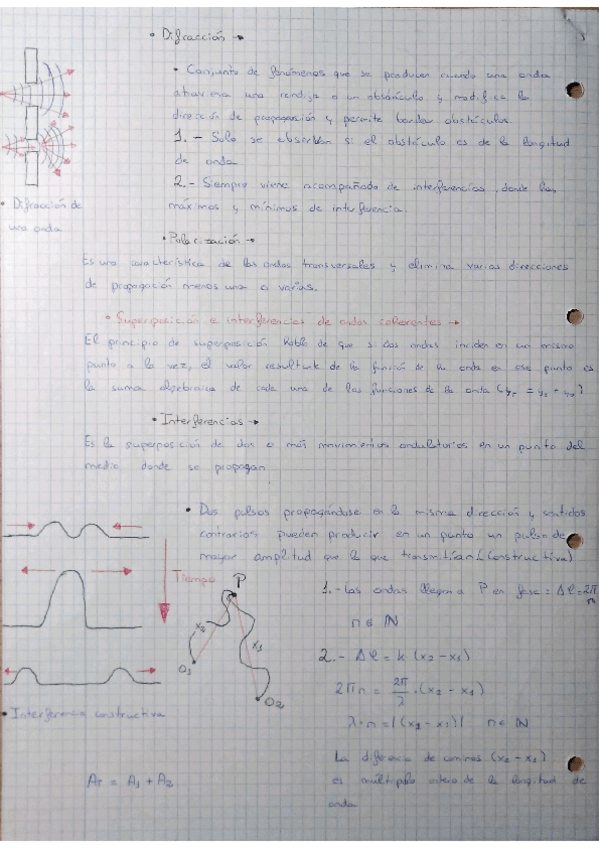 • Difracción →
• Conjunto de fenómenos que se producen cuando una onda
atraviesa una rendija o un obstáculo y modifica la
dirección de propagación y permite bordar obstáculos.
1.- Solo se observan si el obstáculo es de la longitud
de onda
2.- Siempre viene acompañado de interferencias, donde hay
máximos y mínimos de interferencia.
• Difracción de
una onda
• Polarización →
Es una característica de las ondas transversales y elimina varias direcciones
de propagación menos una o varias.
• Superposición e interferencias de ondas coherentes →
El principio de superposición habla de que si dos ondas inciden en un mismo
punto a la vez, el valor resultante de la función de la onda en ese punto es
la suma algebraica de cada una de las funciones de la onda
• Interferencias →
Es la superposición de dos o más movimientos ondulatorios en un punto del
medio donde se propagan
• Dos pulsos propagándose en la misma dirección y sentidos
contrarios pueden producir en un punto un pulso de
mayor amplitud que la que transmitían. (Constructiva)
Tiempo
P
x2
x1
O1
O2
• Interferencia constructiva
AT = A1 + A2
1.- Las ondas llegan a P en fase: Δφ = 2πn
n ∈ ℕ
2.- Δφ = k (x2 - x1)
2πn = 2π/λ · (x2 - x1)
λ·n = |(x2 - x1)| n ∈ ℕ
La diferencia de caminos (x2 - x1)
es múltiplo entero de la longitud de
onda